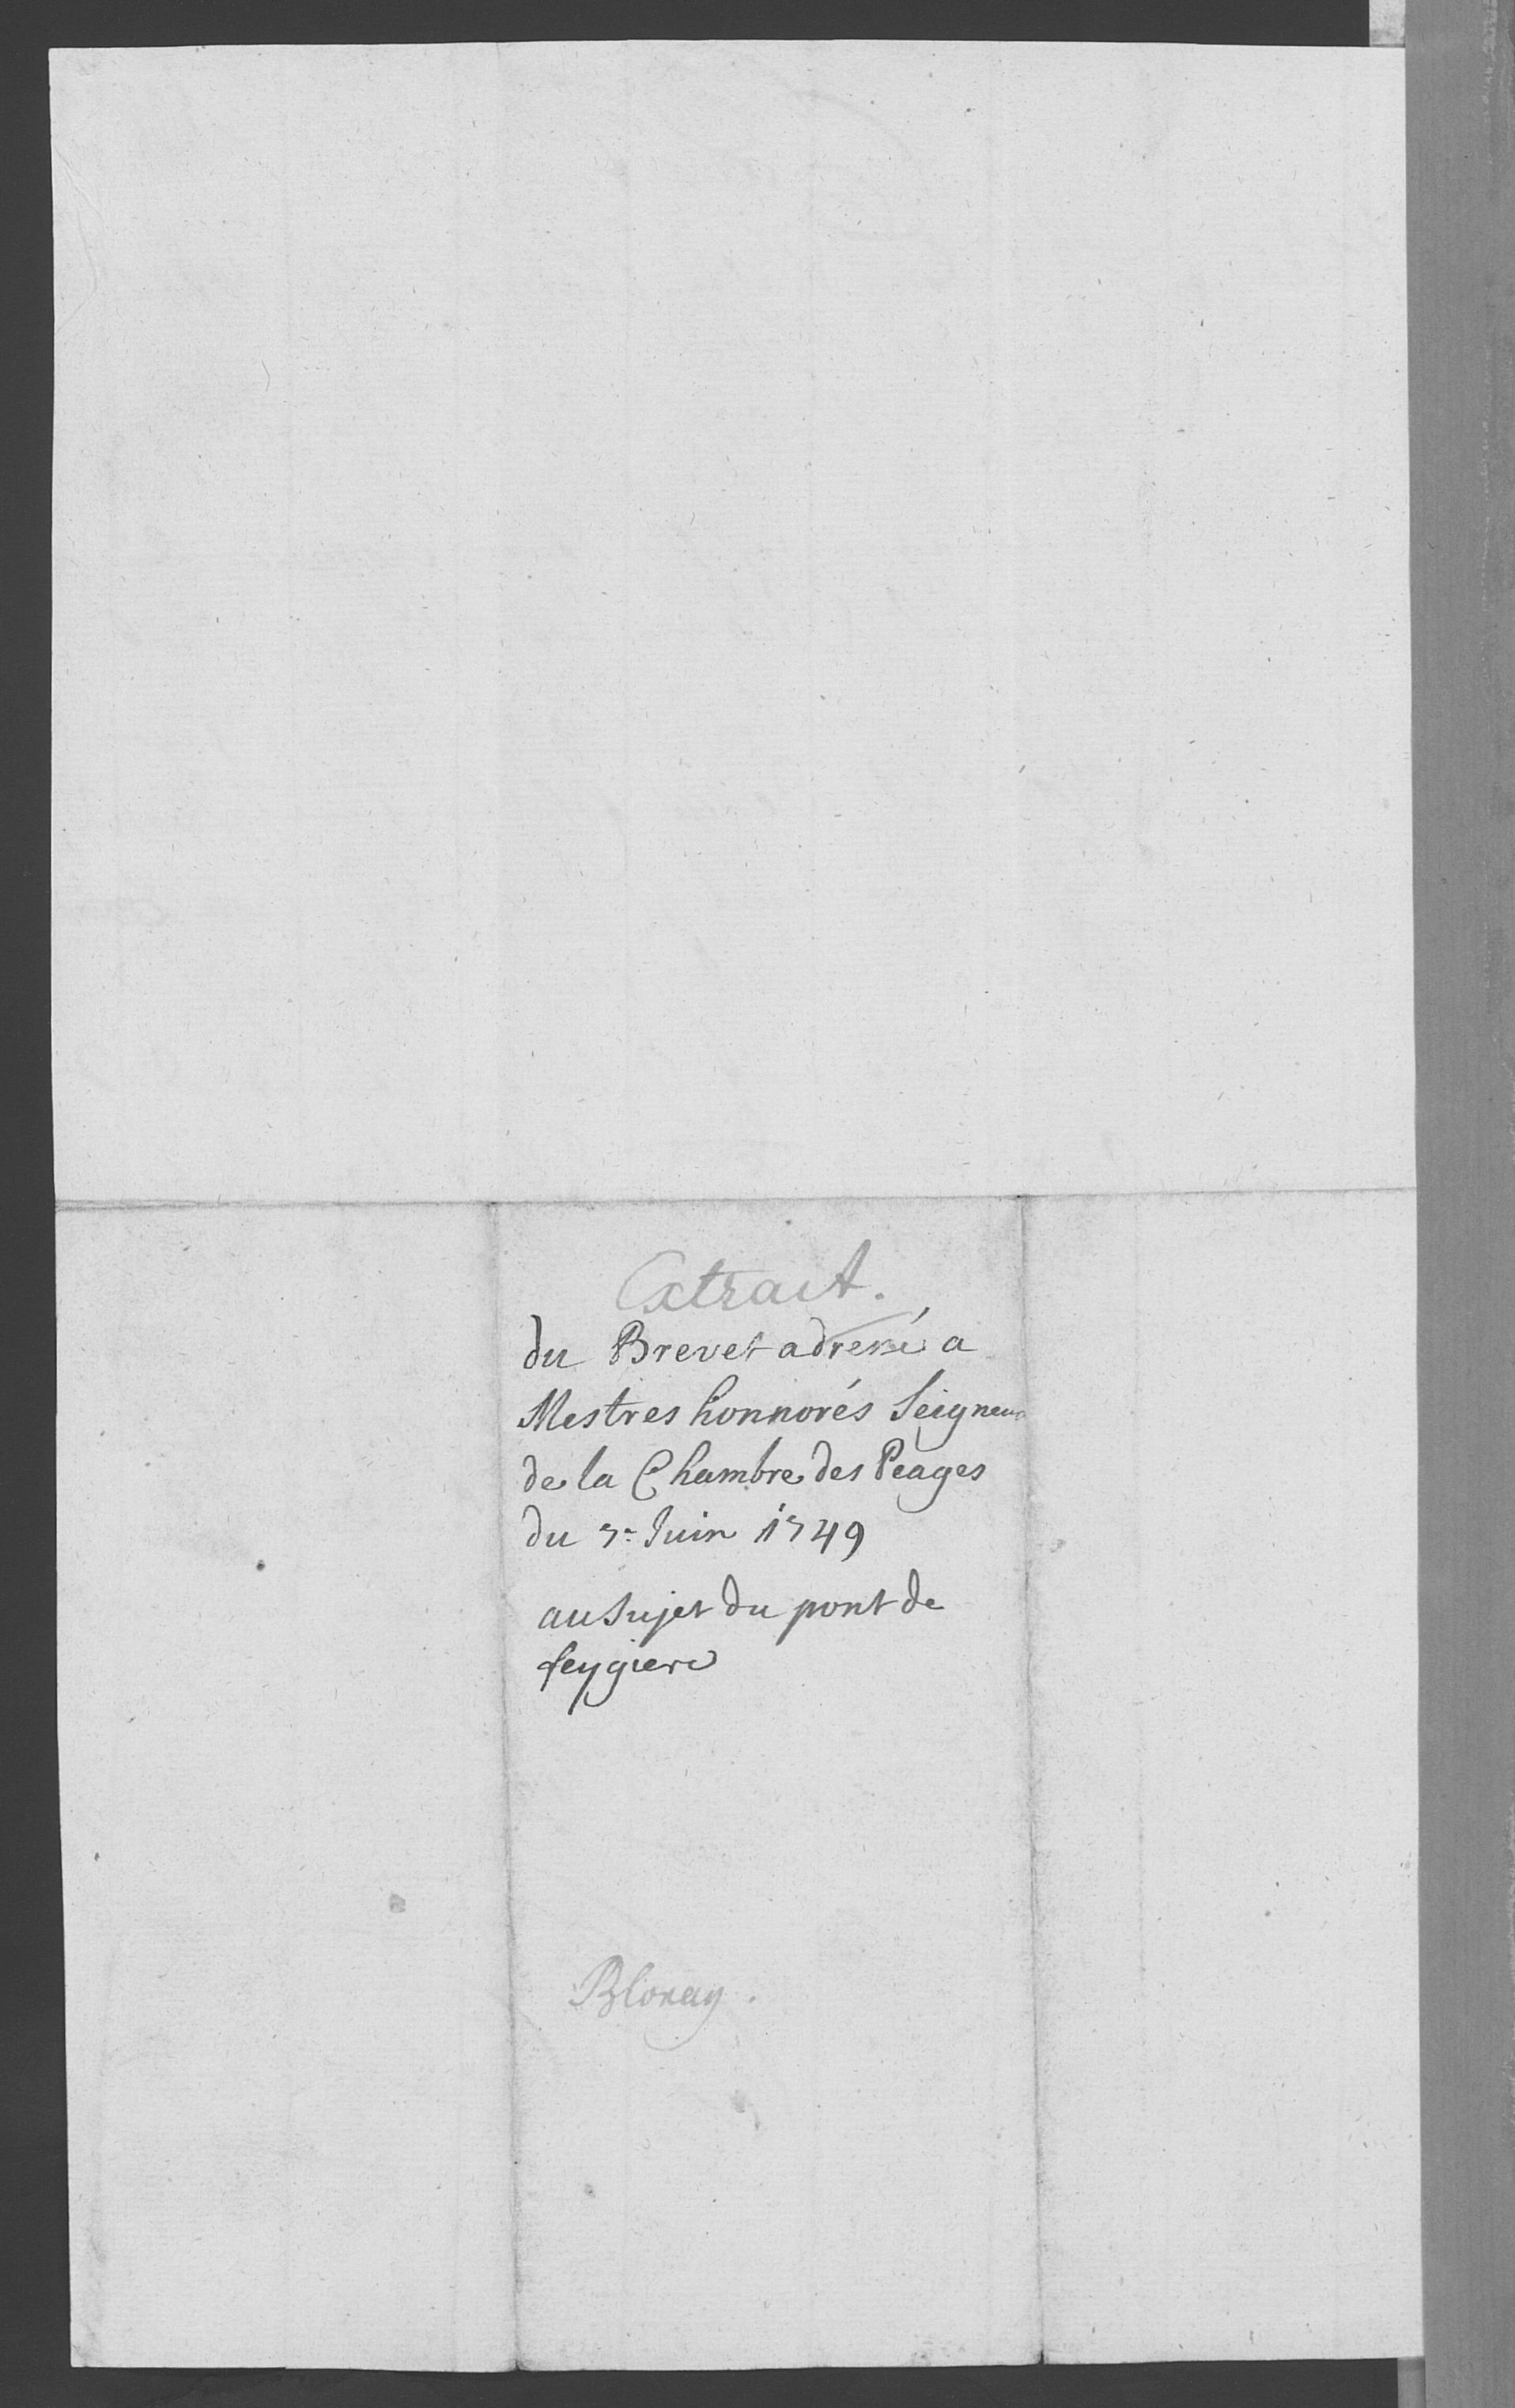 Extrait.
du Brevet adressé a
Mestres honnorés Seigneurs
de la Chambre des Peages
du 7e Juin 1749
au Sujet du pont de
feygiere
Blonay.